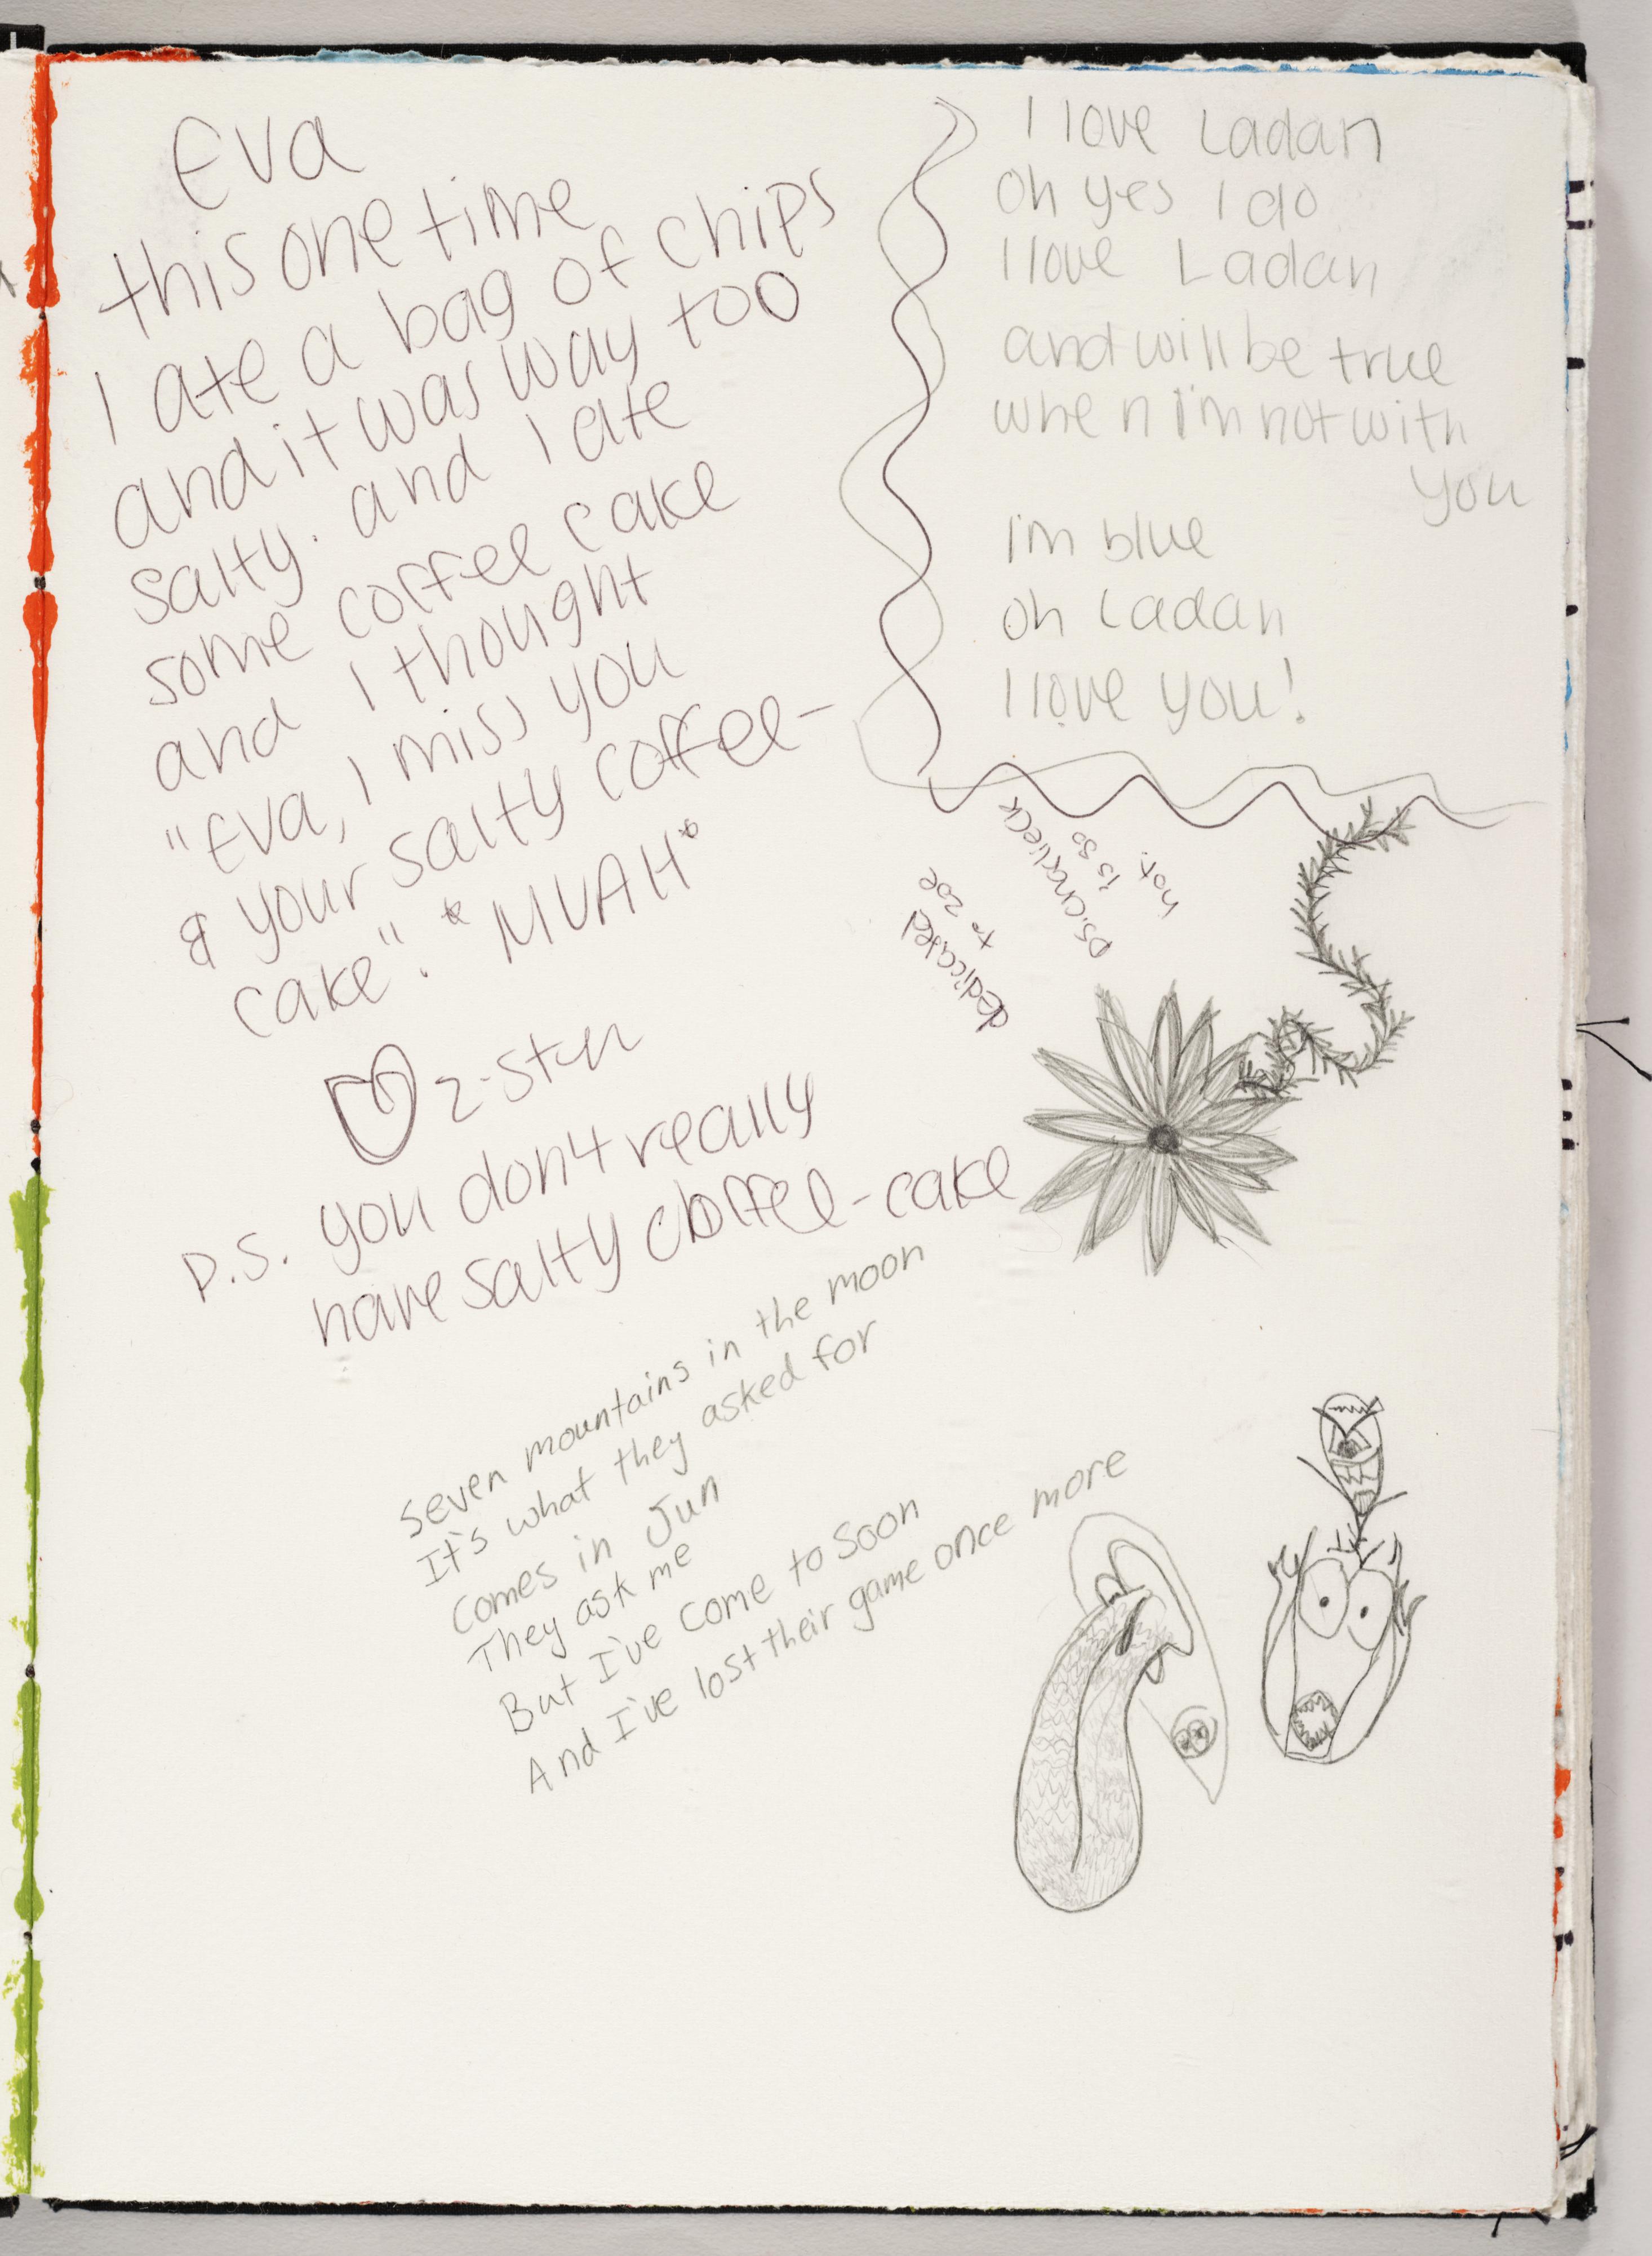 Eva
this one time
I ate a bag of chips
and it was way too
salty. and I ate
some coffee cake
and I thought
"Eva, I miss you
& your salty coffee-
cake". * MUAH*
P.S. you don't really
have salty coffee-cake
I love Ladan
oh yes I do
I love Ladan
and will be true
when I'm not with
you
I'm blue
oh Ladan
I love you!
dedicated
to zoe
P.S.
is so
hot.
Seven mountains in the moon
It's what they asked for
Comes in Jun
They ask me
But I've come to soon
And I've lost their game once more